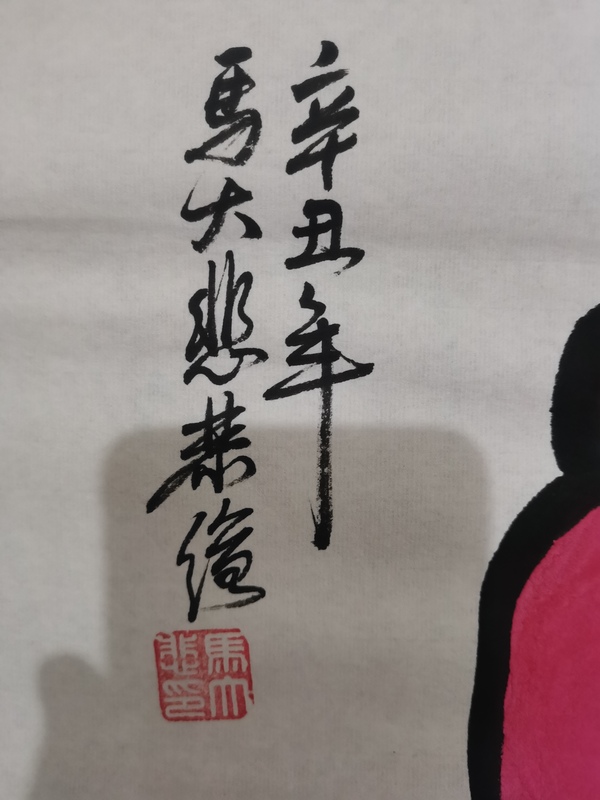 辛丑年
馬大悲恭繪
馬大
悲印